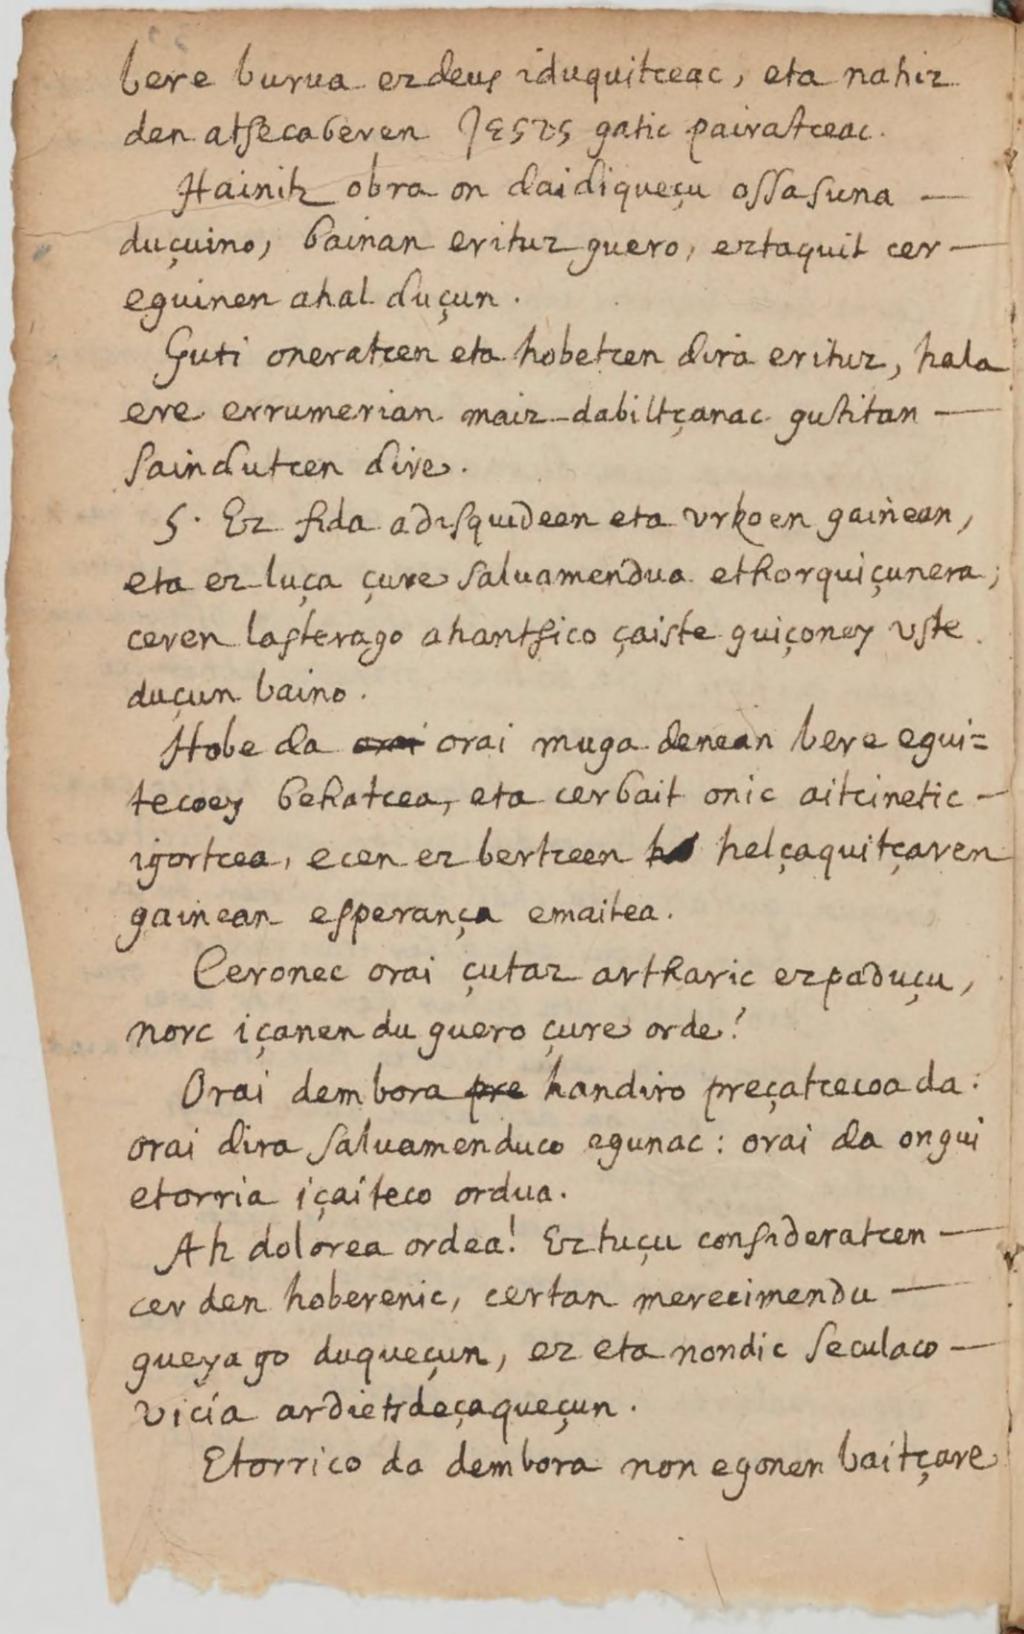 bere burua ezdeus iduquitceac, eta nahiz
den atsecaberen JESUS gatic pairatceac.
Hainitz obra on daidiqueçu ossasuna —
duçuino, bainan erituz guero, eztaquit cer —
eguinen ahal duçun.
Guti oneratcen eta hobetcen dira erituz, hala
ere errumerian maiz dabiltçanac gutitan —
saindutcen dire.
5. Ez fida adisquideen eta vrkoen gaiñean,
eta ez luça çure saluamendua ethorquiçunera;
ceren lasterago ahantsico çaiste guiçoney vste
duçun baino.
Hobe da orai orai muga denean bere egui=
tecoey behatcea, eta cerbait onic aitcinetic —
igortcea, ecen ez bertceen helçaquitçaren
gainean esperança emaitea.
Ceronec orai çutaz artharic ezpaduçu,
norc içanen du guero çure orde?
Orai dembora pre handiro preçatcecoa da:
orai dira saluamenduco egunac: orai da ongui
etorria içaiteco ordua.
Ah dolorea ordea! Eztuçu consideratcen —
cer den hoberenic, certan merecimendu —
gueyago duqueçun, ez eta nondic seculaco —
vicia ardietsdeçaqueçun.
Etorrico da dembora non egonen baitçare